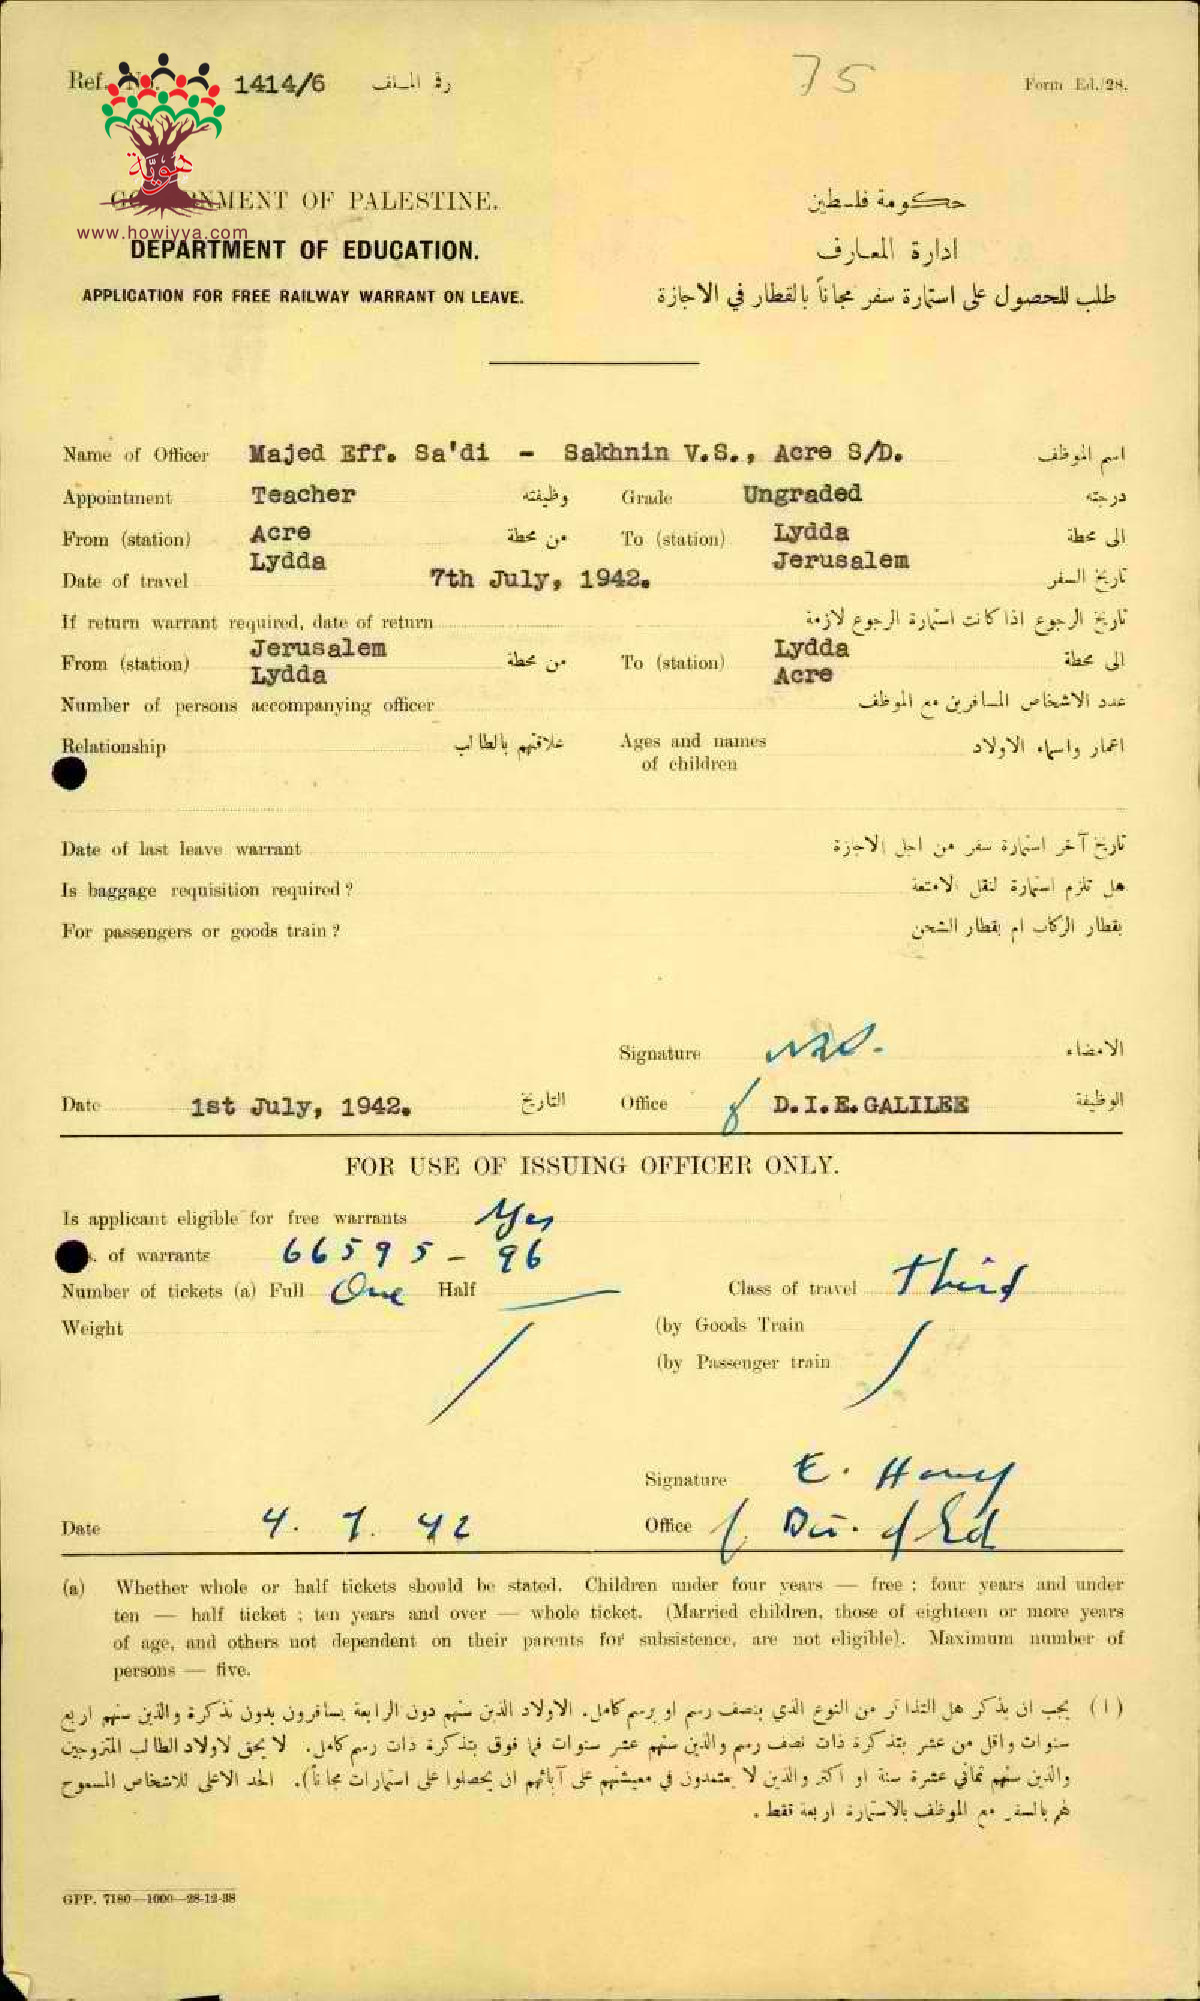 Ref. No. 1414/6 رقم الملف
75
Form Ed./28.
هويّة
www.howiyya.com
GOVERNMENT OF PALESTINE. حكومة فلسطين
DEPARTMENT OF EDUCATION. ادارة المعارف
APPLICATION FOR FREE RAILWAY WARRANT ON LEAVE. طلب للحصول على استمارة سفر مجاناً بالقطار في الاجازة
Name of Officer Majed Eff. Sa'di - Sakhnin V.S., Acre S/D. اسم الموظف
Appointment Teacher وظيفته Grade Ungraded درجته
From (station) Acre من محطة To (station) Lydda الى محطة
Lydda Jerusalem
Date of travel 7th July, 1942. تاريخ السفر
If return warrant required, date of return تاريخ الرجوع اذا كانت استمارة الرجوع لازمة
Jerusalem Lydda
From (station) Lydda من محطة To (station) Acre الى محطة
Number of persons accompanying officer عدد الاشخاص المسافرين مع الموظف
Relationship علاقتهم بالطالب Ages and names of children اعمار واسماء الاولاد
Date of last leave warrant تاريخ آخر استمارة سفر من اجل الاجازة
Is baggage requisition required? هل تلزم استمارة لنقل الامتعة
For passengers or goods train? بقطار الركاب ام بقطار الشحن
Signature الامضاء
Date 1st July, 1942. التاريخ Office D.I.E. GALILEE الوظيفة
FOR USE OF ISSUING OFFICER ONLY.
Is applicant eligible for free warrants Yes
of warrants 66595 - 96
Number of tickets (a) Full One Half Class of travel Third
Weight (by Goods Train
(by Passenger train
Signature E.
Date 4. 7. 42 Office f. Dir. of Ed
(a) Whether whole or half tickets should be stated. Children under four years — free; four years and under
ten — half ticket; ten years and over — whole ticket. (Married children, those of eighteen or more years
of age, and others not dependent on their parents for subsistence, are not eligible). Maximum number of
persons — five.
(ا) يجب ان يذكر هل التذاكر من النوع الذي بنصف رسم او برسم كامل. الاولاد الذين سنهم دون الرابعة يسافرون بدون تذكرة والذين سنهم اربع
سنوات واقل من عشر بتذكرة ذات نصف رسم والذين سنهم عشر سنوات فما فوق بتذكرة ذات رسم كامل. لا يحق لاولاد الطالب المتزوجين
والذين سنهم ثماني عشرة سنة او اكثر والذين لا يعتمدون في معيشتهم على آبائهم ان يحصلوا على استمارات مجاناً). الحد الاعلى للاشخاص المسموح
لهم بالسفر مع الموظف بالاستمارة اربعة فقط.
GPP. 7180—1000—28-12-38